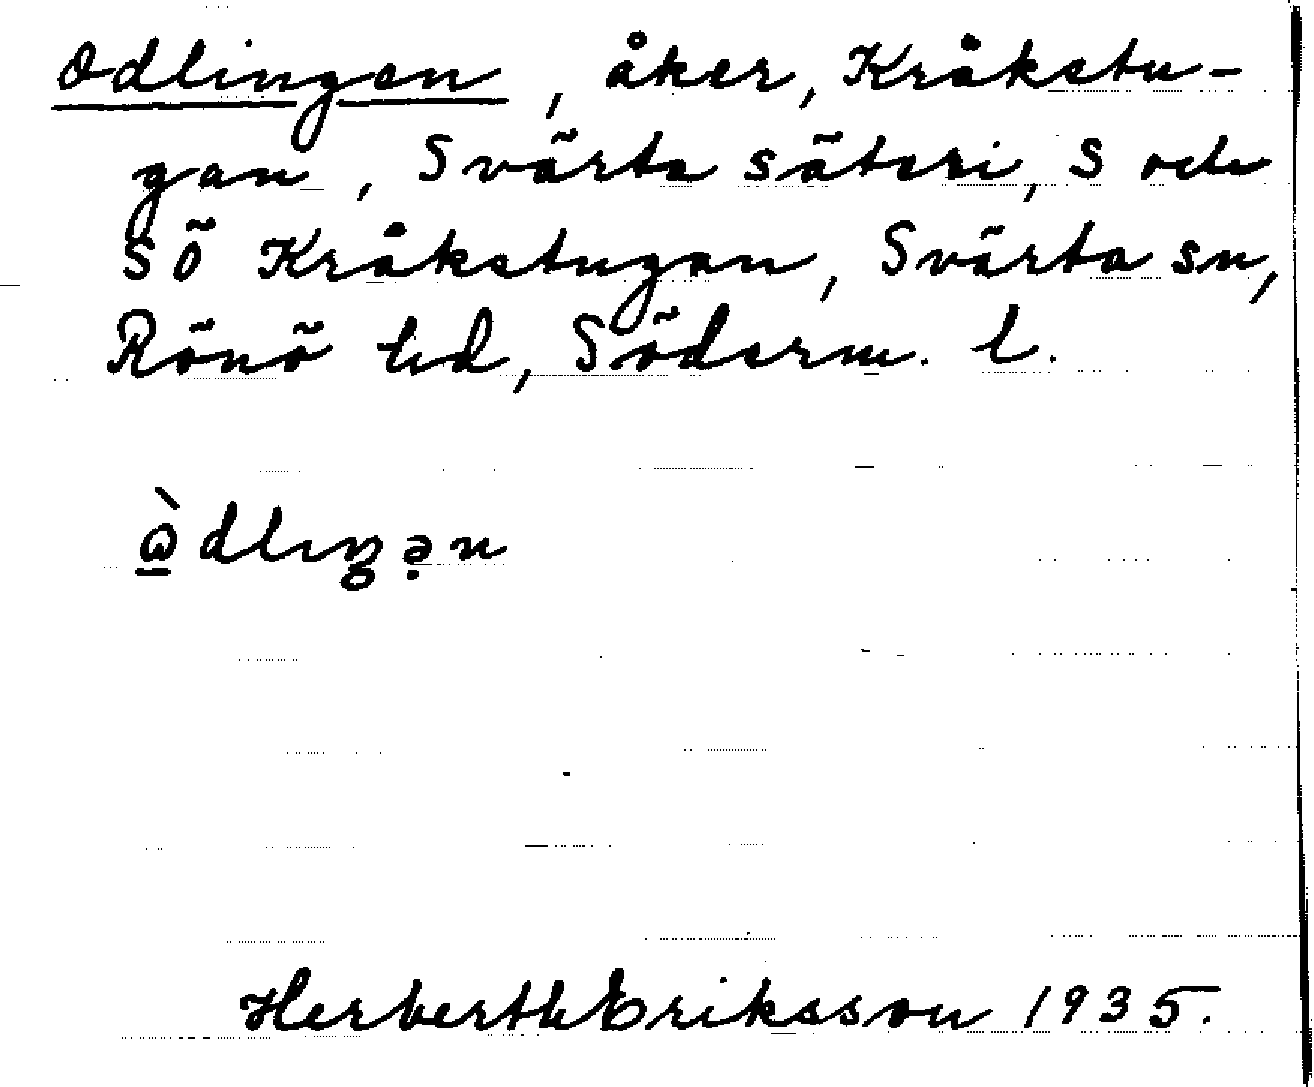 Odlingen, åker, Kråkstu-
gan, Svärta säteri, S och
SÖ Kråkstugan, Svärta sn,
Rönö hd, Söderm. l.
Herberth Eriksson 1935.